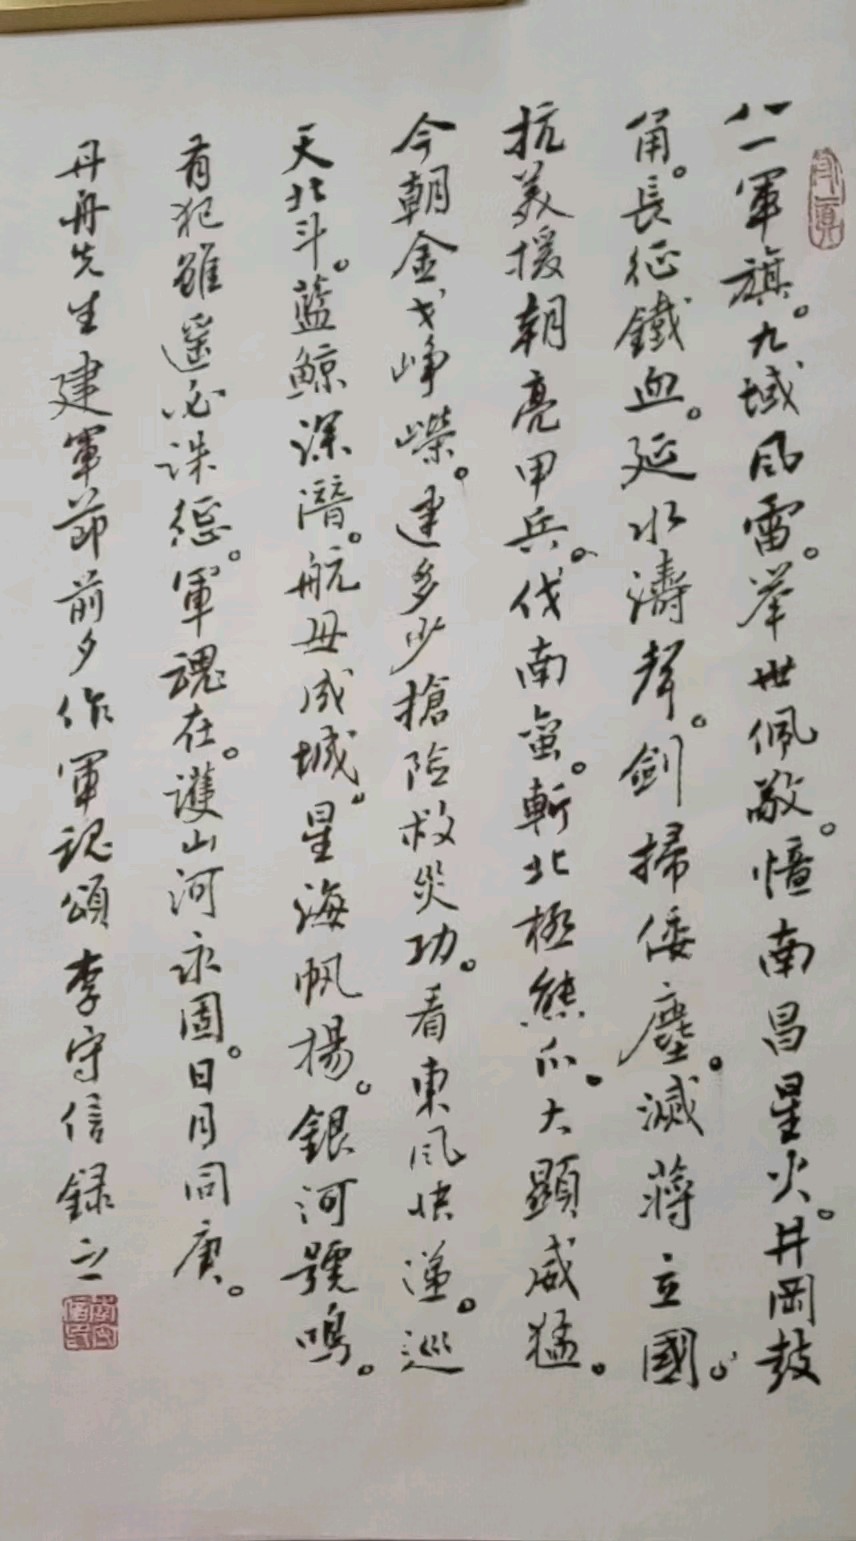 八一軍旗。九域風雷。举世佩敬。憶南昌星火。井岡鼓
角。長征鐵血。延水濤聲。劍掃倭塵。滅蔣立國。
抗美援朝亮甲兵。伐南蛮。斬北極熊爪。大顯威猛。
今朝金戈崢嶸。建多少搶險救災功。看東风快递。巡
天北斗。藍鯨深潛。航母成城。星海帆揚。銀河號鳴。
有犯雖遥必誅懲。軍魂在。護山河永固。日月同庚。
丹舟先生建軍節前夕作軍魂頌 李守信録之